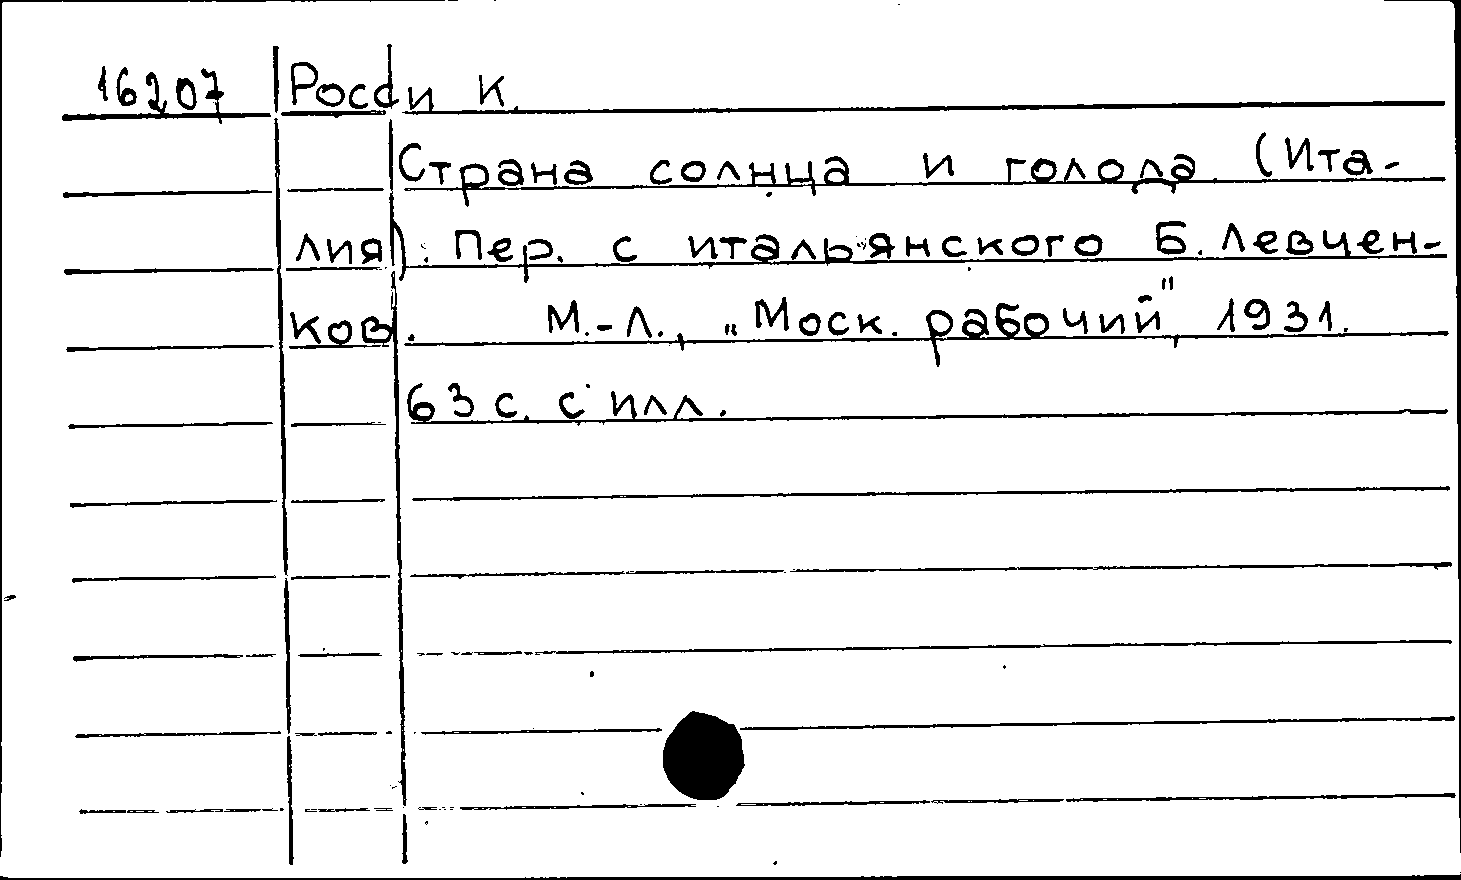 16207 Росси К.
Страна солнца и голода. (Ита-
лия). Пер. с итальянского Б. Левчен-
ков. М.-Л., „Моск. рабочий", 1931.
63 с. с илл.